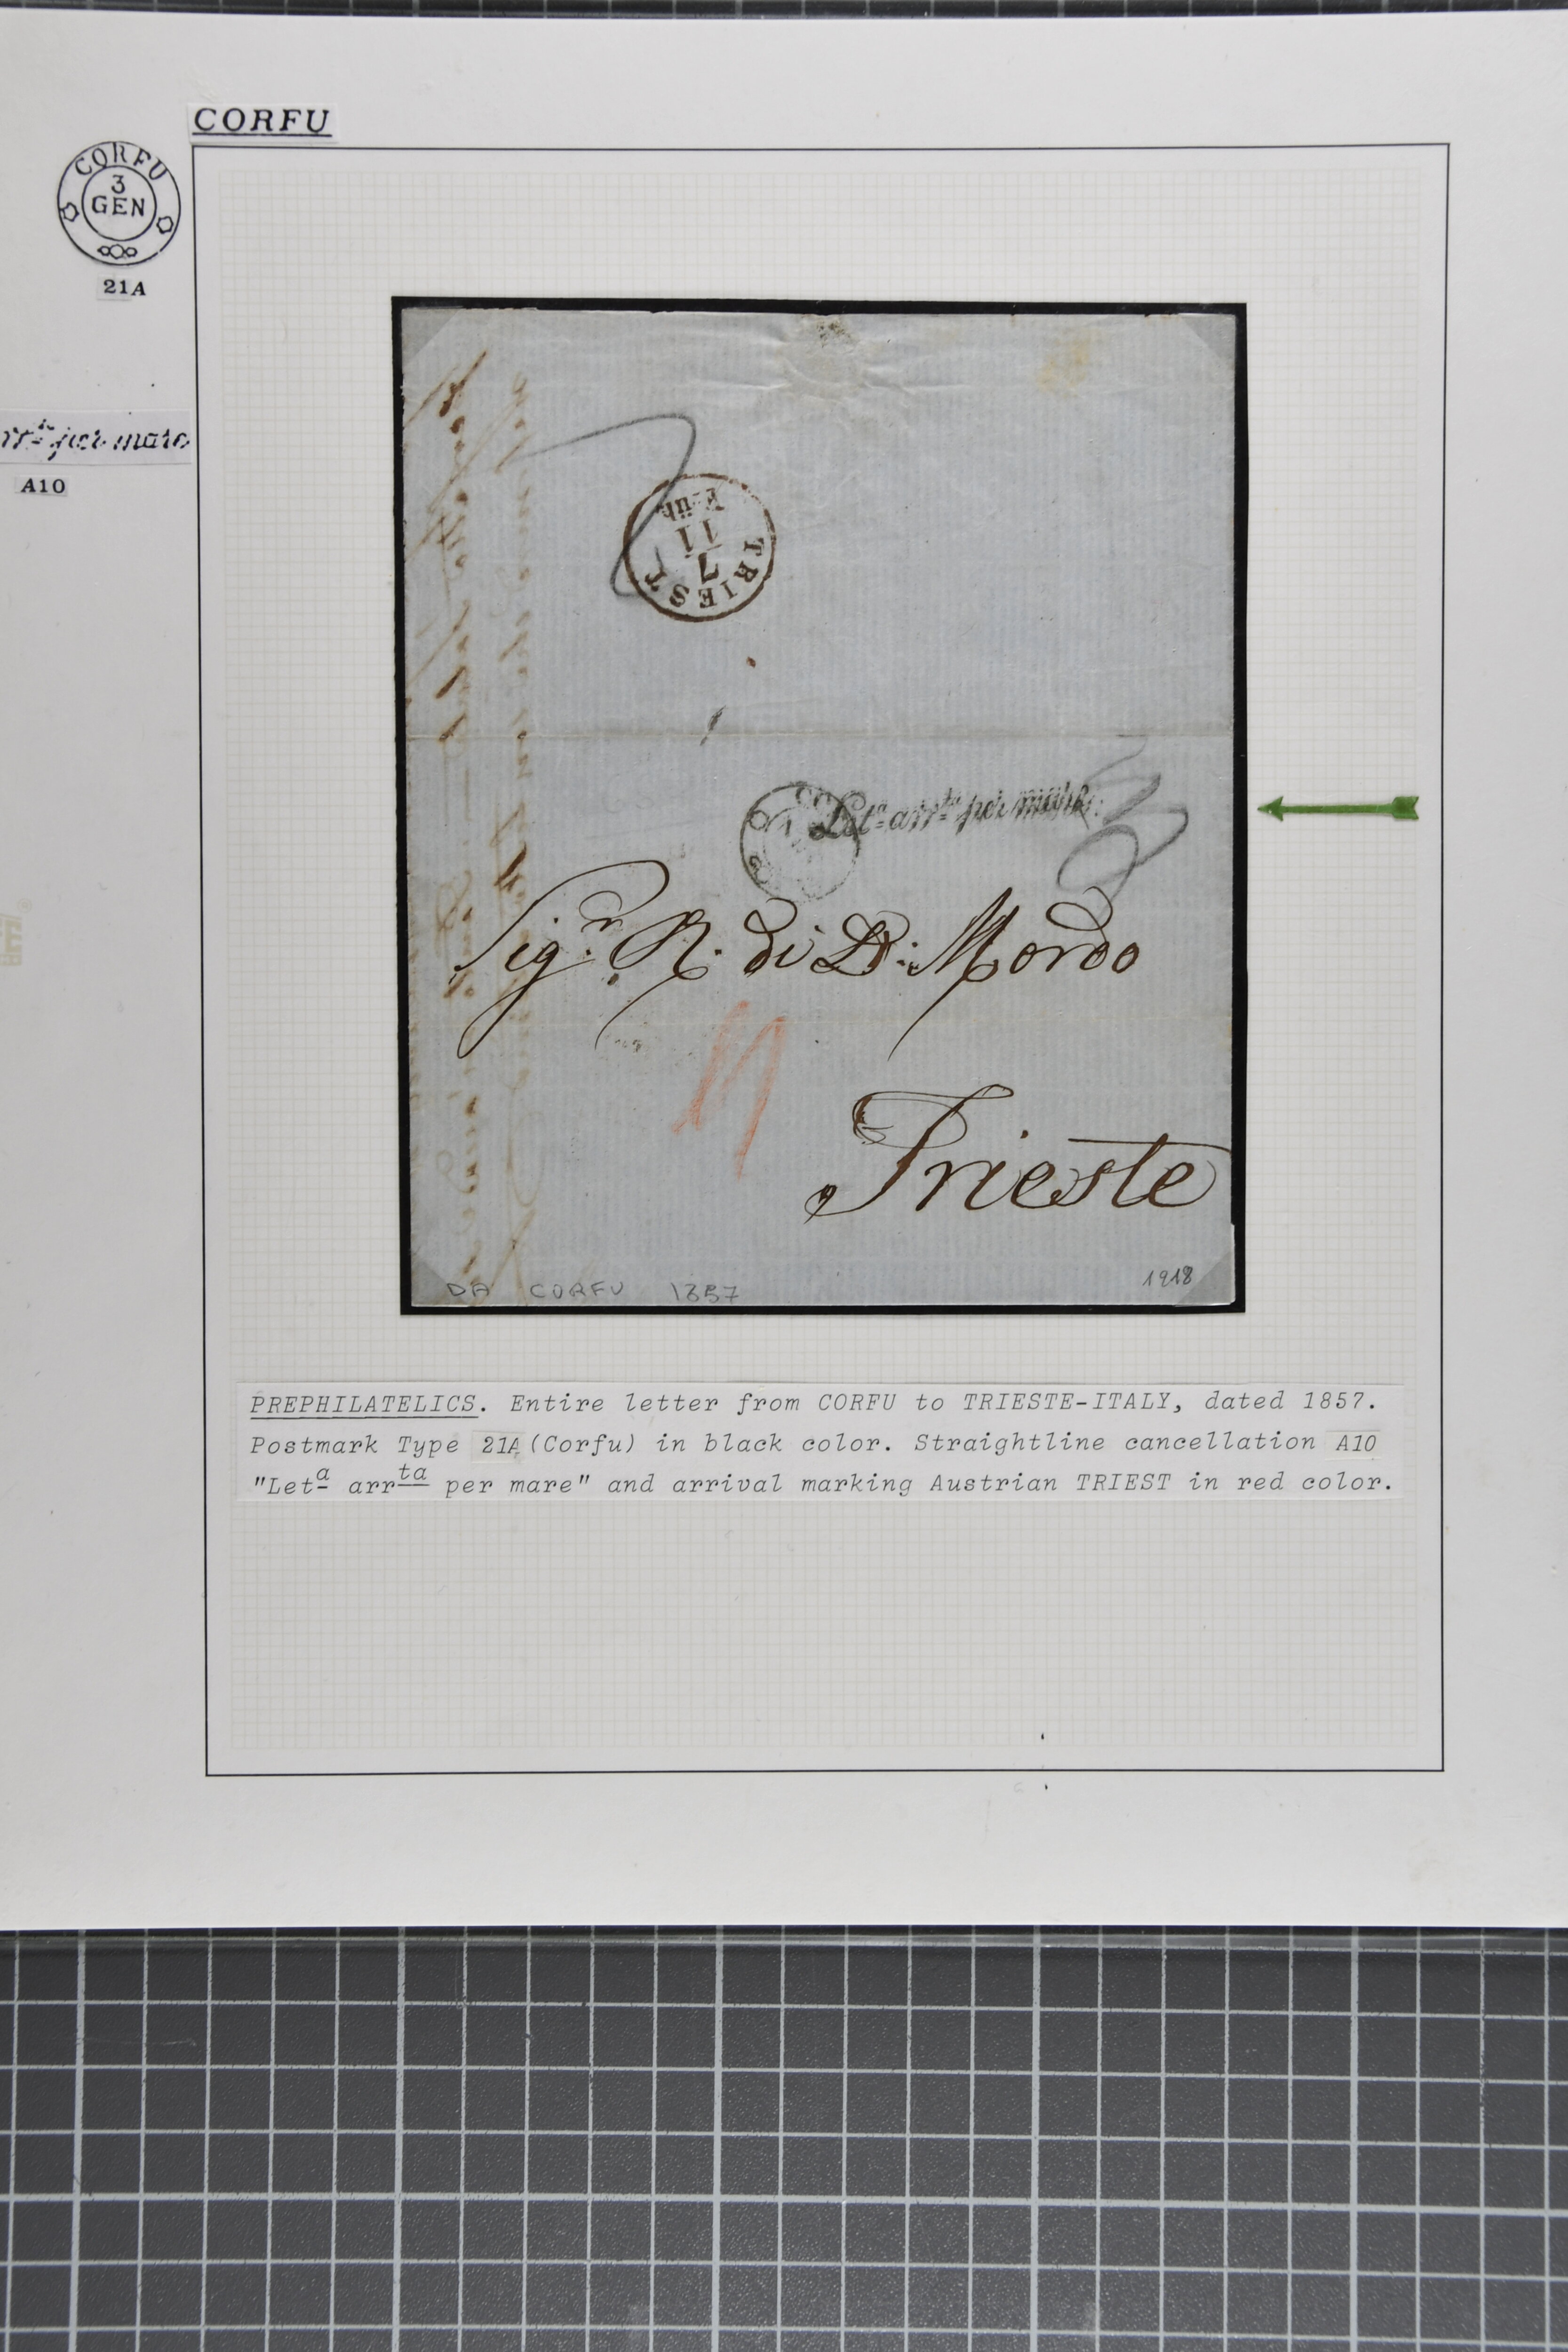 CORFU
CORFU
3
GEN
21A
rrta per mare
A10
TRIEST
7
11
Früh
Leta arrta per mare
Sigr. R. di D: Mordo
Trieste
DA CORFU 1857
1918
PREPHILATELICS. Entire letter from CORFU to TRIESTE-ITALY, dated 1857.
Postmark Type 21A (Corfu) in black color. Straightline cancellation A10
"Leta arrta per mare" and arrival marking Austrian TRIEST in red color.